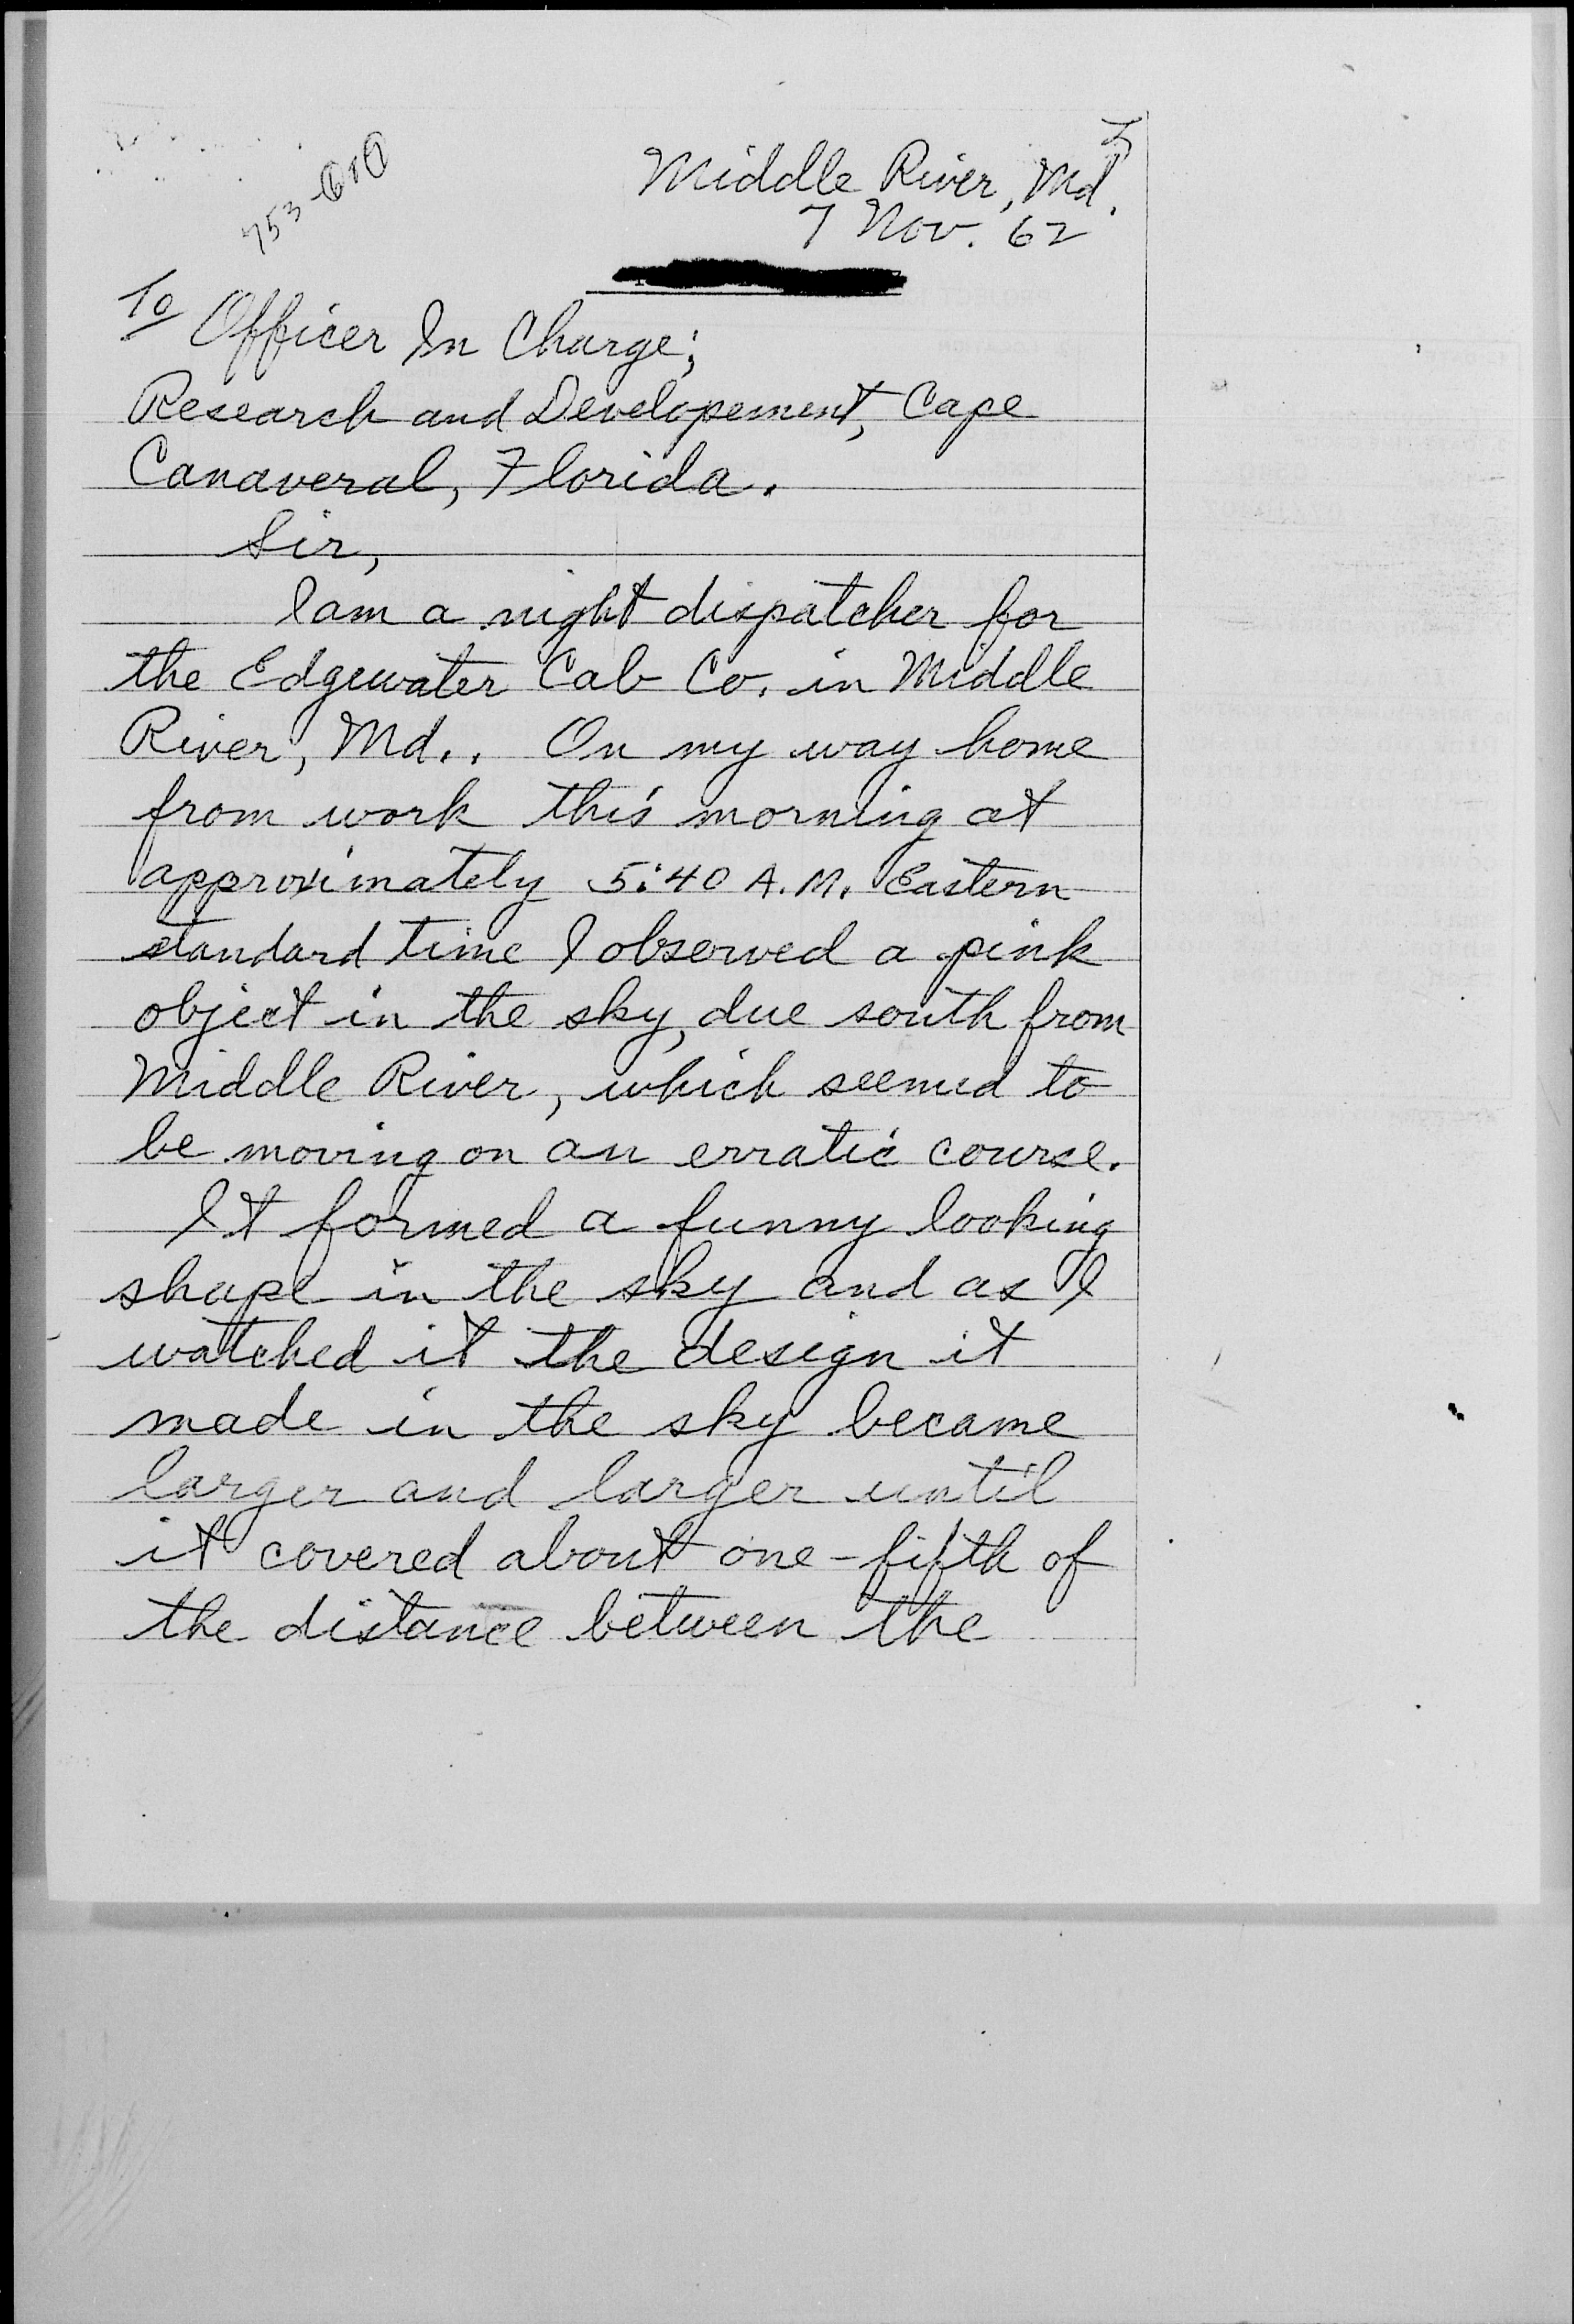 Middle River, Md.
7 Nov. 62
To Officer In Charge;
Research and Developement, Cape
Canaveral, Florida.
Sir,
I am a night dispatcher for
the Edgewater Cab Co. in Middle
River, Md.. On my way home
from work this morning at
approximately 5:40 A.M. Eastern
standard time I observed a pink
object in the sky, due south from
Middle River, which seemed to
be moving on an erratic course.
It formed a funny looking
shape in the sky and as I
watched it the design it
made in the sky became
larger and larger until
it covered about one-fifth of
the distance between the